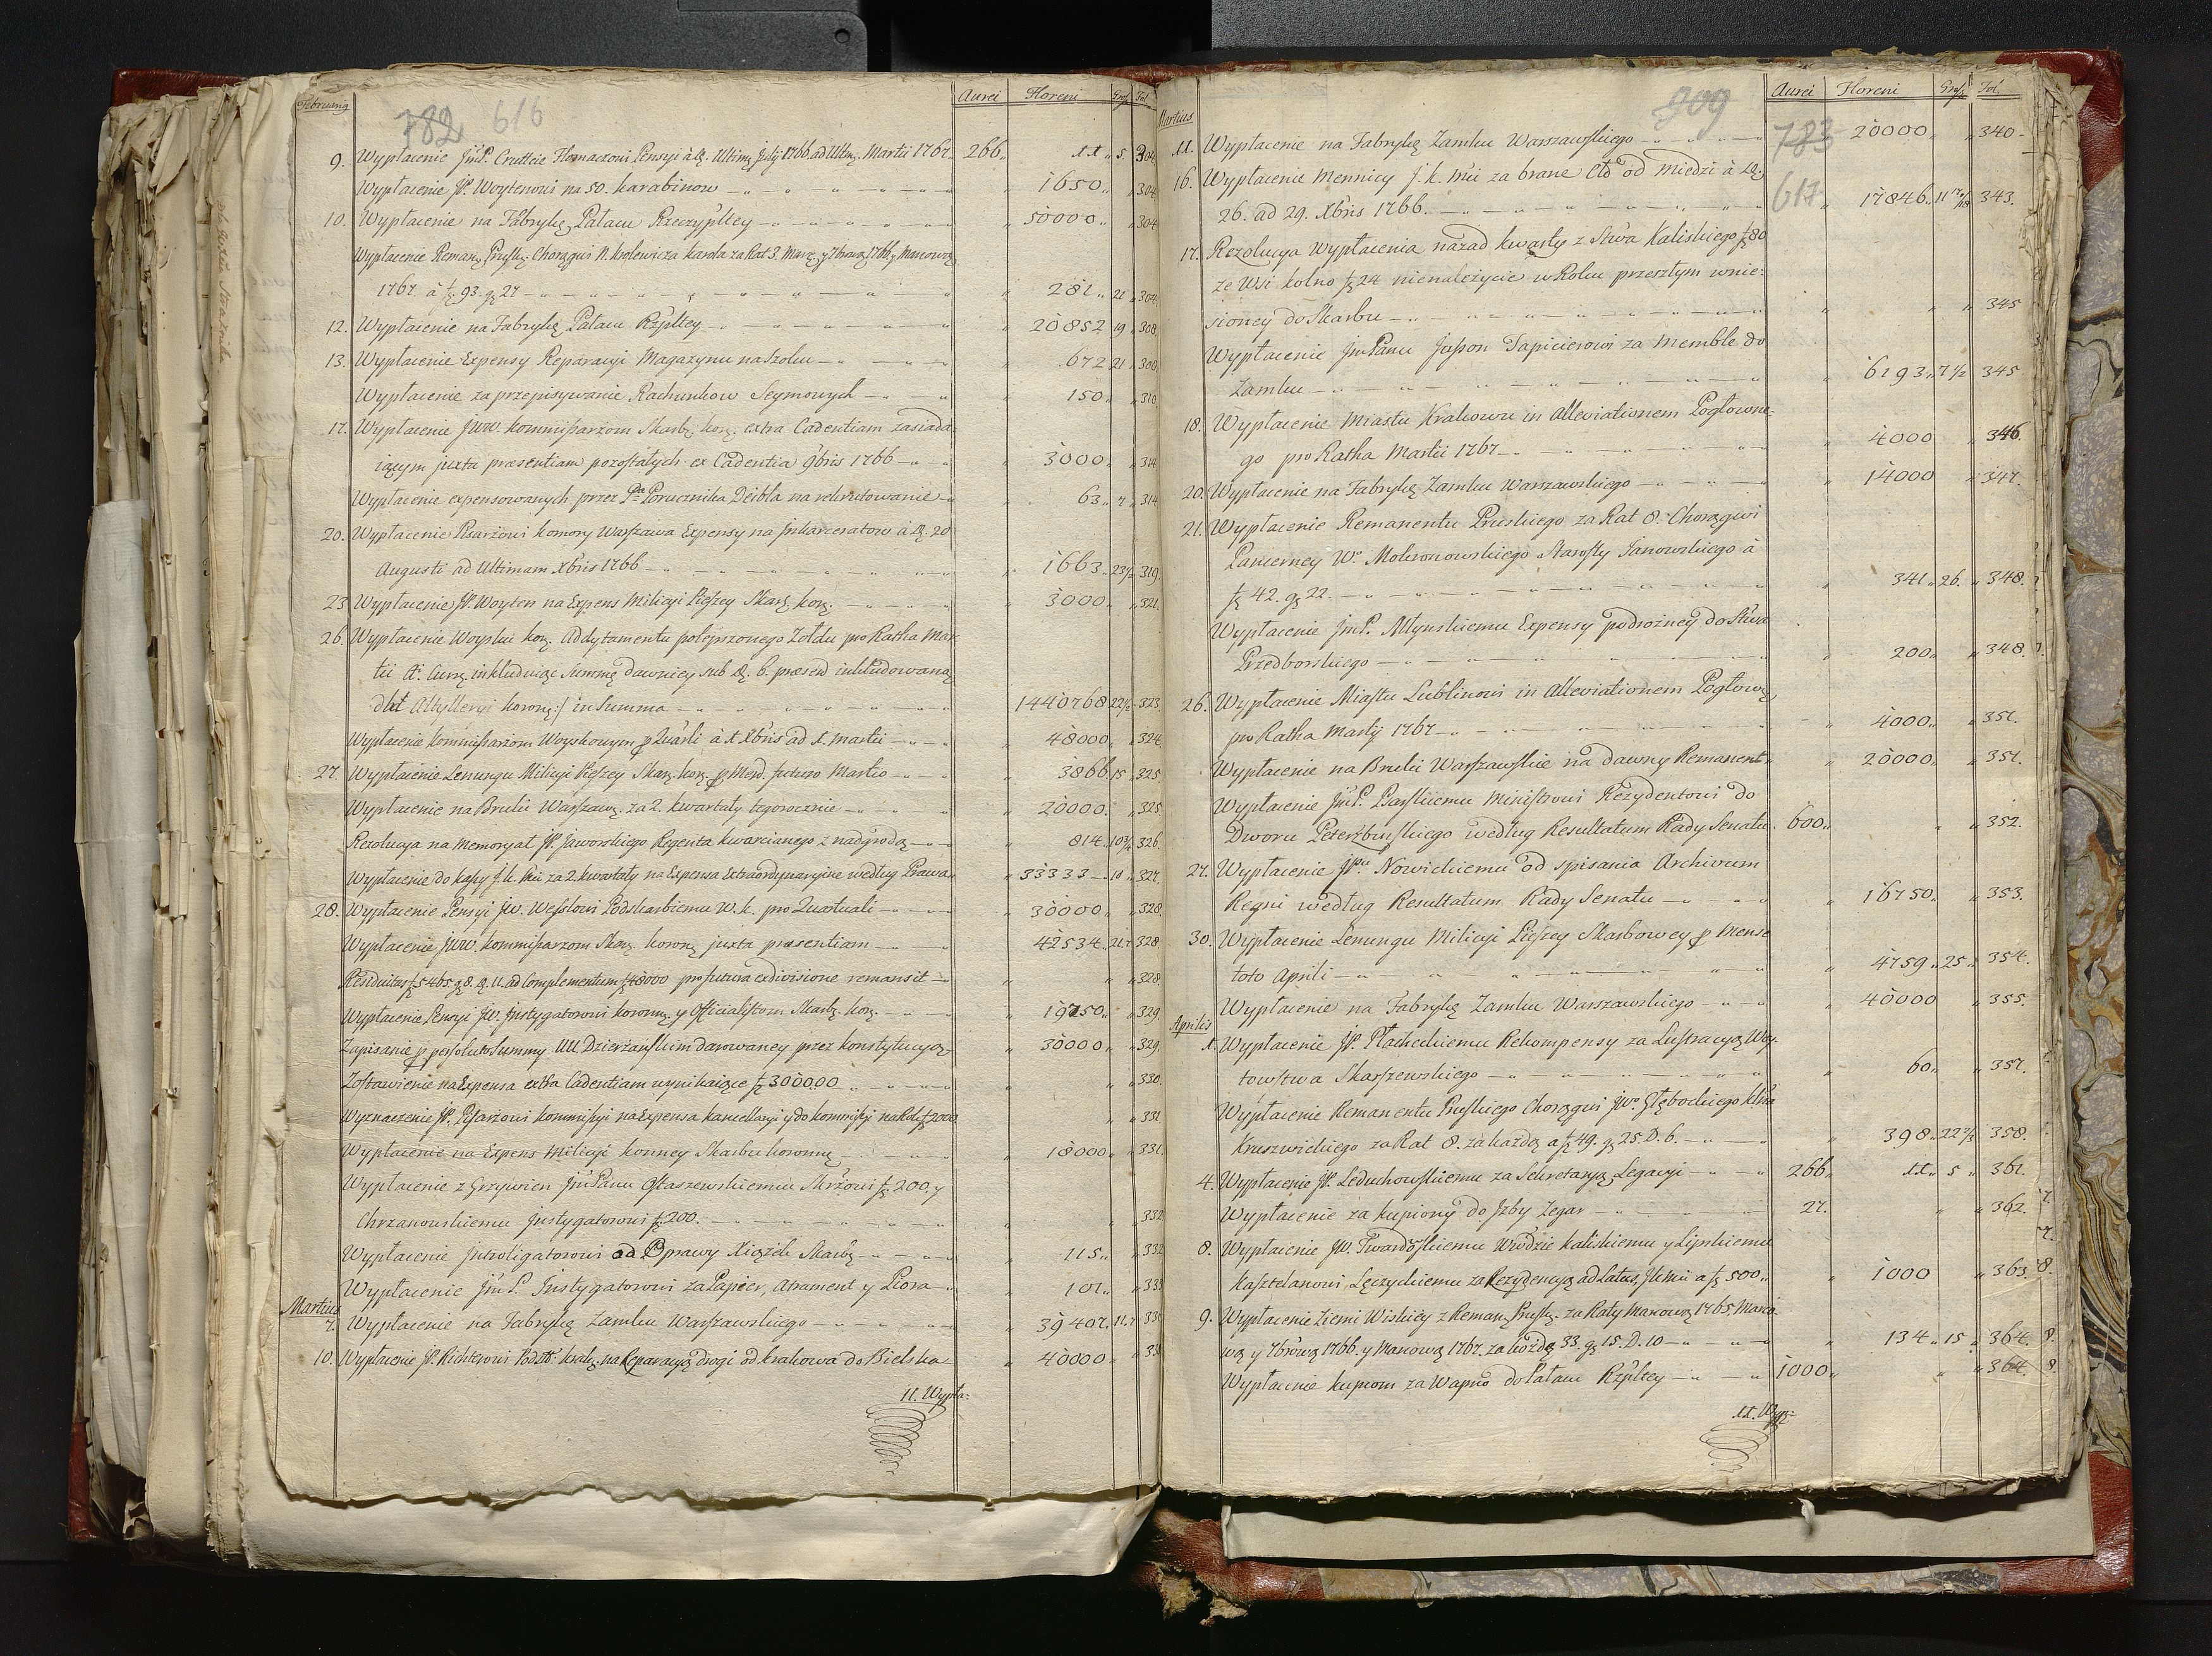 Februarij
782 616
Aurei Floreni Gros. Fol.
9. Wypłacenie JmP. Crutcie Tłomaczowi Pensyi à D. Ultima July 1766. ad Ultim. Martii 1767. 266. 11. 5. 304.
Wypłacenie JP. Woytenowi na 50. karabinow 1650. 304.
10. Wypłacenie na Fabrykę Pałacu Rzeczypltey 50000. 304
Wypłacenie Reman. Prusk. Chorągwi N. Krolewicza Karola za Rat 3. Marc. y 7brową 1766. y Marcową
1767. à f. 93. g. 27 281. 21. 304.
12. Wypłacenie na Fabrykę Pałacu Rzpltey 20852 19. 308.
13. Wypłacenie Expensy Reparacyi Magazynu na Szolcu 672 21. 308.
Wypłacenie za przepisywanie Rachunkow Seymowych 150. 310.
17. Wypłacenie JWW. Kommissarzom Skarb. kor. extra Cadentiam zasiada:
iącym juxta præsentiam pozostałych ex Cadentia 9bris 1766 3000. 314
Wypłacenie expensowanych przez Pa Porucznika Deibla na rekrutowanie 63. 7. 314
20. Wypłacenie Pisarzowi komory Warszawa Expensy na Inkarceratow à D. 20
Augusti ad Ultimam Xbris 1766 1663. 23½ 319.
23 Wypłacenie JP. Woyten na Expens Milicyi Pieszey Skar. kor. 3000. 321.
26. Wypłacenie Woysku kor. Addytamentu polepszonego Zołdu pro Ratha Mar:
tii A. Curr. inkluduiąc Summę dawniey sub D. 6. præsend inkludowaną
dla Altylleryi koronn:/ in Summa 1440768 22½ 323.
Wypłacenie Kommissarzom Woyskowym p Quarli à 1 Xbris ad 1. Martii 48000. 324.
27. Wypłacenie Lenungu Milicyi Pieszey Skar. kor. p Mens. futuro Martio 3866. 15. 325.
Wypłacenie na Bruki Warszaw. za 2. kwartały tegoroczne 20000. 325.
Rezolucya na Memoryał JP. Jaworskiego Regenta kwarcianego z nadgrodą 814. 10½ 326.
Wypłacenie do kassy J.K. Mci za 2. kwartały na Expensa Extraordynaryjne według Prawa 33333 10. 327.
28. Wypłacenie Pensyi JW. Wesslowi Podskarbiemu W. k. pro Quartuali 30000. 328.
Wypłacenie JWW. Kommissarzom Skar. koron. juxta præsentiam 42534. 21. 328.
Residuitas f. 5465. g. 8. D. 11. ad Complementum f. 48000 pro futura ex divisione remansit 328.
Wypłacenie Pensyi JW. Instygatorowi koronn. y Officialistom Skarb. kor. 19250. 329.
Zapisanie p persoluto Summy UU Dzierzanskim darowaney przez konstytucyą 30000. 329.
Zostawienie na Expensa extra Cadentiam wynikaiące f. 300000 330.
Wyznaczenie JP. Pisarzowi Kommissyi na Expensa kancellaryi y do kommissyi na Rok f. 2000 331.
Wypłacenie na Expens Milicyi konney Skarbu koronn. 18000. 331.
Wypłacenie z Grzywien JmPanu Ostaszewskiemu Skrzowi f. 200. y
Chrzanowskiemu Instygatorowi f. 200. 332
Wypłacenie Introligatorowi od Oprawy Xiążek Skarb. 115. 332
Wypłacenie JmP. Instygatorowi za Papier, Atrament y Piora 101. 333
Martius
7. Wypłacenie na Fabrykę Zamku Warszawskiego 39407. 11.
10. Wypłacenie JP. Richterowi na Reparacyą drogi od Krakowa do Bielska 40000
11. Wypła:
909
783
617
Martius
Aurei Floreni Gros. Fol.
11. Wypłacenie na Fabrykę Zamku Warszawskiego 20000. 340.
16. Wypłacenie Mennicy J.K. Mci za brane Cło od Miedzi à D.
26. ad 29. Xbris 1766. 17846. 11 343.
17. Rezolucya Wypłacenia nazad kwarty z Stwa Kaliskiego f. 80
ze Wsi kolno f. 24 nienależycie w Roku przeszłym wnie:
sioney do Skarbu 345
Wypłacenie JmPanu Jasson Tapicierowi za Memble do
Zamku 6193. 7½ 345
18. Wypłacenie Miastu Krakowu in Alleviationem Pogłowne:
go pro Ratha Martii 1767 4000 346.
20. Wypłacenie na Fabrykę Zamku Warszawskiego 14000 347.
21. Wypłacenie Remanentu Pruskiego za Rat 8. Chorągwi
Pancerney Wo. Mokronowskiego Starosty Janowskiego à
f. 42. g. 22. 341. 26. 348.
Wypłacenie JmP. Młynskiemu Expensy podrożney do Stwa
Przedborskiego 200. 348.
26. Wypłacenie Miastu Lublinowi in Alleviationem Pogłow.
pro Ratha Martij 1767 4000. 351.
Wypłacenie na Bruki Warszawskie na dawny Remanent 20000. 351.
Wypłacenie JmP. Psarskiemu Ministrowi Rezydentowi do
Dworu Peterzburskiego według Resultatum Rady Senatu. 600. 352.
27. Wypłacenie JPu. Nowickiemu od spisania Archivum
Regni według Resultatum Rady Senatu 16750. 353.
30. Wypłacenie Lenungu Milicyi Pieszey Skarbowey p Mense
toto Aprili 4759. 25. 354.
Wypłacenie na Fabrykę Zamku Warszawskiego 40000 355.
Aprilis
1. Wypłacenie JP. Płacheckiemu Rekompensy za Lustracyą Woy:
towstwa Skarszewskiego 60. 357.
Wypłacenie Remanentu Pruskiego Chorągwi JWo. Głębockiego Klna
Kruszwickiego za Rat 8. za każdą a f. 49. g. 25. D. 6. 398. 22⅔ 358.
4. Wypłacenie JP. Leduchowskiemu za Sekretaryą Legacyi 266. 11. 5. 361.
Wypłacenie za kupiony do Izby Zegar 27. 362.
8. Wypłacenie JW. Twardoskiemu Wwodzie kaliskiemu y Lipskiemu
Kasztelanowi Łęczyckiemu za Rezydencyą ad Latus JKMci a f. 500. 1000 363.
9. Wypłacenie Ziemi Wiskiey z Reman. Prusk. za Raty Marcową 1765. Marco:
wą y 7brową 1766. y Marcową 1767. za każdą 33. g. 15. D. 10 134. 15. 364.
Wypłacenie kupcom za Wapno do Pałacu Rzpltey 1000. 364.
11. Wyp: